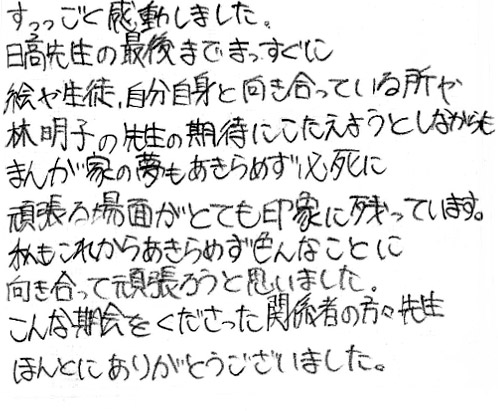 すっっごく感動しました。
日高先生の最後までまっすぐに
絵や生徒、自分自身と向き合っている所や
林明子の先生の期待にこたえようとしながらも
まんが家の夢もあきらめず必死に
頑張る場面がとても印象に残っています。
私もこれからあきらめず色んなことに
向き合って頑張ろうと思いました。
こんな期会をくださった関係者の方々先生
ほんとにありがとうございました。